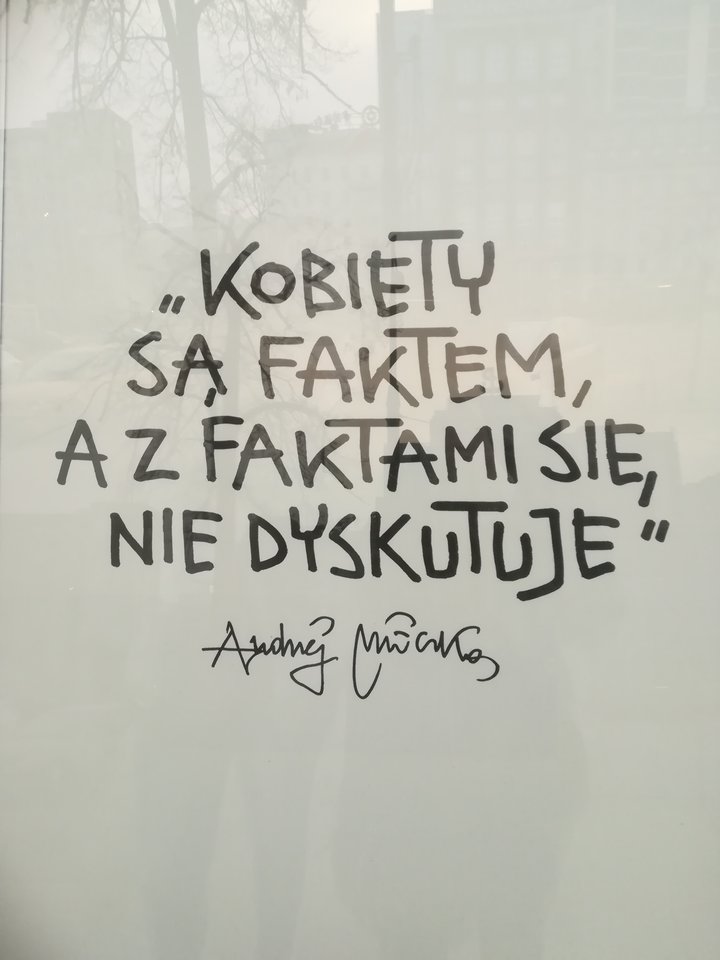 „KOBIETY
SĄ FAKTEM,
A Z FAKTAMI SIĘ
NIE DYSKUTUJE”
Andrzej Mleczko